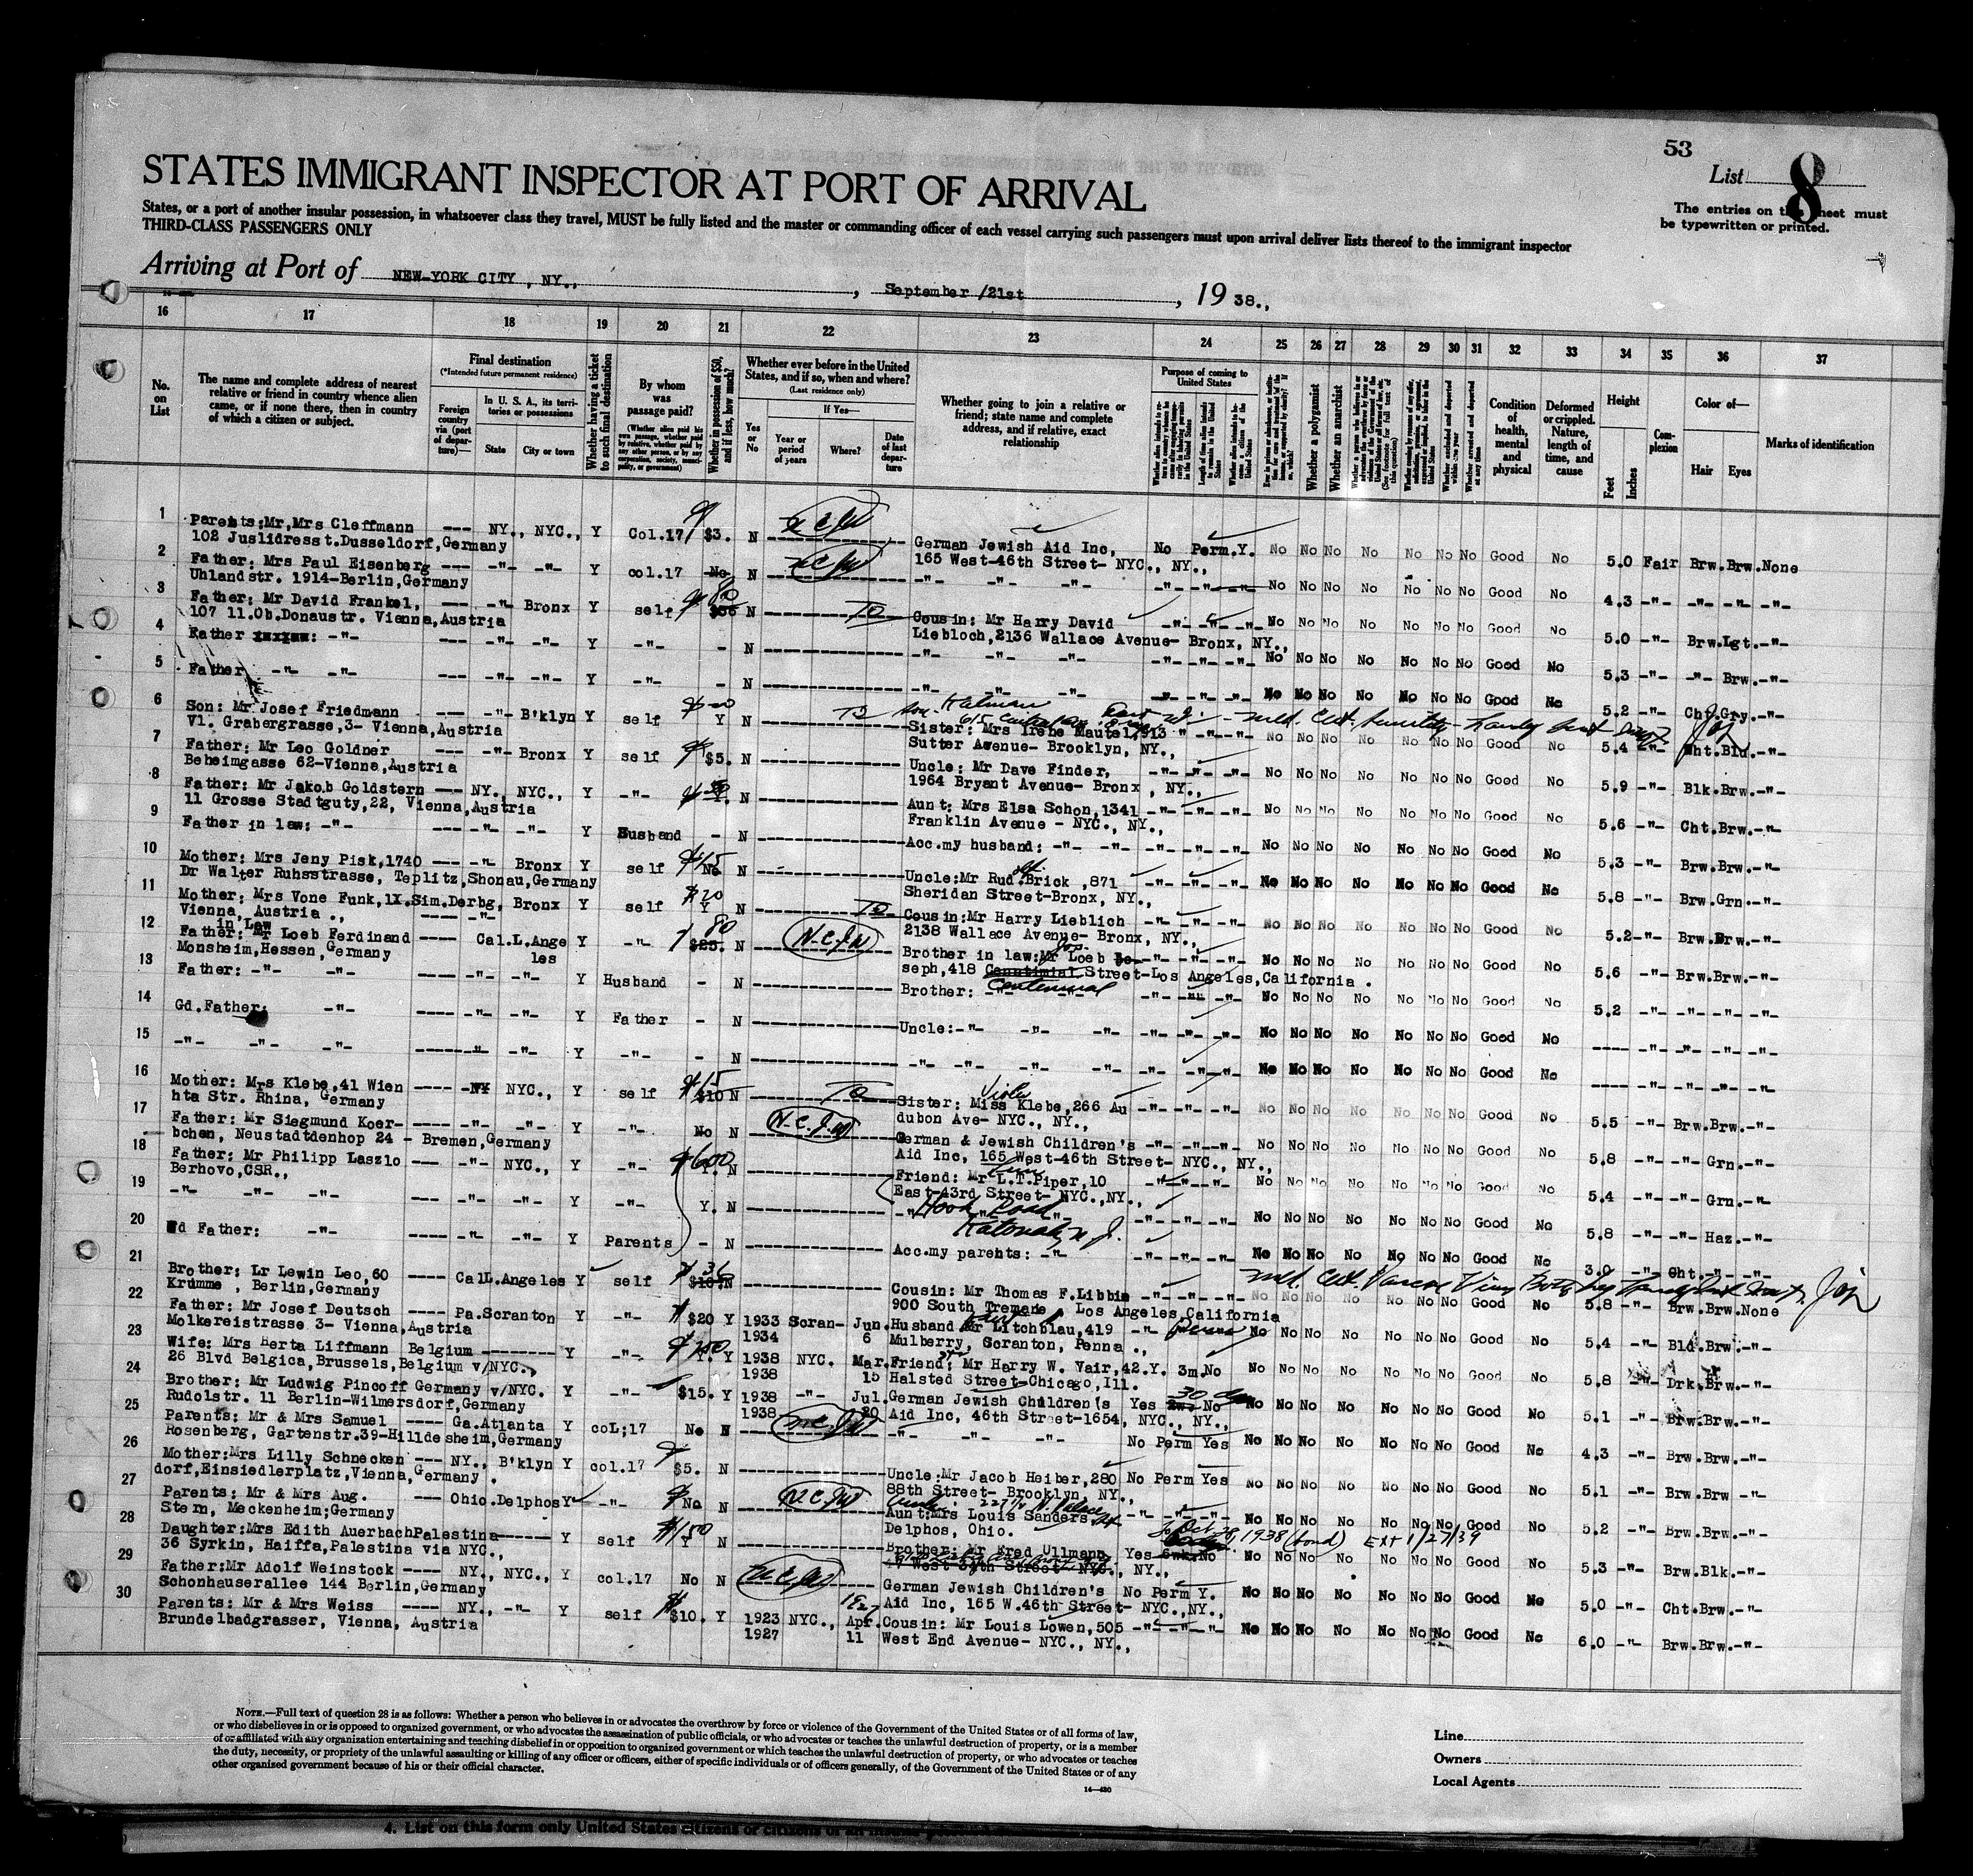 53
STATES IMMIGRANT INSPECTOR AT PORT OF ARRIVAL
List 8
States, or a port of another insular possession, in whatsoever class they travel, MUST be fully listed and the master or commanding officer of each vessel carrying such passengers must upon arrival deliver lists thereof to the immigrant inspector
THIRD-CLASS PASSENGERS ONLY
The entries on this sheet must
be typewritten or printed.
Arriving at Port of NEW-YORK CITY, NY., , September /21st , 1938.,
16 17 18 19 20 21 22 23 24 25 26 27 28 29 30 31 32 33 34 35 36 37
No. on List
The name and complete address of nearest relative or friend in country whence alien came, or if none there, then in country of which a citizen or subject.
Final destination
(*Intended future permanent residence)
Foreign country via (port of departure)—
In U. S. A., its territories or possessions
State
City or town
Whether having a ticket to such final destination
By whom was passage paid?
(Whether alien paid his own passage, whether paid by relative, whether paid by any other person, or by any corporation, society, municipality, or government)
Whether in possession of $50, and if less, how much?
Whether ever before in the United States, and if so, when and where?
(Last residence only)
If Yes—
Yes or No
Year or period of years
Where?
Date of last departure
Whether going to join a relative or friend; state name and complete address, and if relative, exact relationship
Purpose of coming to United States
Whether a polygamist
Whether an anarchist
Condition of health, mental and physical
Deformed or crippled. Nature, length of time, and cause
Height
Feet
Inches
Complexion
Color of—
Hair
Eyes
Marks of identification
1 Parents:Mr,Mrs Cleffmann --- NY., NYC., Y Col.17 $3. N German Jewish Aid Inc, No Perm.Y. No No No No No No No Good No 5.0 Fair Brw.Brw.None
102 Juslidresst.Dusseldorf,Germany 165 West-46th Street- NYC., NY.,
2 Father: Mrs Paul Eisenberg --- -"- -"- Y col.17 No N -"- -"- -"- -"- -"- -"- No No No No No No No Good No 4.3 -"- -"- -"- -"-
Uhlandstr. 1914-Berlin,Germany
3 Father: Mr David Frankel, --- -"- Bronx Y self $36 80 N Cousin: Mr Harry David -"- -"- -"- No No No No No No No Good No 5.0 -"- Brw.Lgt.-"-
107 11.Ob.Donaustr. Vienna,Austria Liebloch,2136 Wallace Avenue- Bronx, NY.,
4 Father : -"- --- -"- -"- Y -"- - N -"- -"- -"- -"- -"- -"- No No No No No No No Good No 5.3 -"- -"- Brw.-"-
5 Father -"- -"- --- -"- -"- Y -"- - N -"- -"- -"- -"- -"- -"- No No No No No No No Good No 5.2 -"- Cht.Gry.-"-
6 Son: Mr Josef Friedmann --- -"- B'klyn Y self Y N Sister: Mrs Irene Mautel,913 No No No No No No No Good No 5.4 -"- Wht.Blu.-"-
Vl. Grabergrasse,3- Vienna,Austria Sutter Avenue- Brooklyn, NY.,
7 Father: Mr Leo Goldner --- -"- Bronx Y self $5. N Uncle: Mr Dave Finder, -"- -"- -"- No No No No No No No Good No 5.9 -"- Blk.Brw.-"-
Beheimgasse 62-Vienna,Austria 1964 Bryant Avenue- Bronx , NY.,
8 Father: Mr Jakob Goldstern --- NY., NYC., Y -"- N Aunt: Mrs Elsa Schon,1341 -"- -"- -"- No No No No No No No Good No 5.6 -"- Cht.Brw.-"-
11 Grosse Stadtguty,22, Vienna,Austria Franklin Avenue - NYC., NY.,
9 Father in law: -"- --- -"- -"- Y Husband - N Acc.my husband: -"- -"- -"- -"- -"- No No No No No No No Good No 5.3 -"- Brw.Brw.-"-
10 Mother: Mrs Jeny Pisk,1740 --- -"- Bronx Y self $15 No N Uncle:Mr Rud.Brick ,871 -"- -"- -"- No No No No No No No Good No 5.8 -"- Brw.Grn.-"-
Dr Walter Ruhsstrasse, Teplitz,Shonau,Germany Sheridan Street-Bronx, NY.,
11 Mother: Mrs Vone Funk,1X.Sim.Derbg, Bronx Y self $20 Y N Cousin:Mr Harry Lieblich -"- -"- -"- No No No No No No No Good No 5.2-"- Brw.Brw.-"-
Vienna, Austria ., ---- -"- 2138 Wallace Avenue- Bronx, NY.,
12 in Law
Father: Mr Loeb Ferdinand ---- Cal.L.Ange Y -"- $25. 80 N N.C.J.W Brother in law:Mr Loeb Jo- -"- -"- -"- No No No No No No No Good No 5.6 -"- Brw.Brw.-"-
Monsheim,Hessen,Germany les seph,418 Centennial Street-Los Angeles,California .
13 Father: -"- -"- ---- -"- -"- Y Husband - N Brother: -"- -"- -"- -"- -"- No No No No No No No Good No 5.2 -"- -"- -"- -"-
14 Gd.Father: -"- ---- -"- -"- Y Father - N Uncle:-"- -"- -"- -"- -"- -"- No No No No No No No Good No ---- -"- -"- -"- -"-
15 -"- -"- -"- ---- -"- -"- Y -"- - N -"- -"- -"- -"- -"- -"- No No No No No No No Good No ---- -"- -"- -"- -"-
16 Mother: Mrs Klebe,41 Wien ---- -NY NYC., Y self $15 $10 N Sister: Miss Klebe,266 Au -"- -"- -"- No No No No No No No Good No 5.5 -"- Brw.Brw.-"-
hta Str. Rhina, Germany dubon Ave- NYC., NY.,
17 Father: Mr Siegmund Koer- ---- -"- -"- Y -"- No N N.C.J.W German & Jewish Children's -"- -"- -"- No No No No No No No Good No 5.8 -"- -"- Grn.-"-
bchen, Neustadtdenhop 24 - Bremen,Germany Aid Inc, 165 West-46th Street- NYC., NY.,
18 Father: Mr Philipp Laszlo --- -"- NYC., Y -"- $600 Y. N Friend: Mr L.T.Piper,10 -"- -"- -"- No No No No No No No Good No 5.4 -"- -"- Grn.-"-
Berhovo,CSR., East-43rd Street- NYC.,NY.,
19 -"- -"- -"- --- -"- -"- Y -"- Y. N Hook Road -"- -"- -"- No No No No No No No Good No 5.8 -"- -"- Haz.-"-
Katonah N.J.
20 Gd Father: -"- ---- -"- -"- Y Parents - N Acc.my parents: -"- -"- -"- -"- No No No No No No No Good No 3.0 -"- Cht.-"- -"-
21 Brother: Lr Lewin Leo,60 ---- Cal L.Angeles Y self N Cousin: Mr Thomas F.Libbin -"- -"- -"- No No No No No No No Good No 5.8 -"- Brw.Brw.None
Krumme , Berlin,Germany 900 South Tremane , Los Angeles,California
22 Father: Mr Josef Deutsch ---- Pa.Scranton Y -"- $20 Y 1933 Scran- Jun. Husband Mr Litchblau,419 -"- No No No No No No No Good No 5.4 -"- Bld.Brw.-"-
Molkereistrasse 3- Vienna,Austria 1934 6 Mulberry, Scranton, Penna .,
23 Wife: Mrs Berta Liffmann Belgium -------- Y -"- Y. Y 1938 NYC. Mar. Friend: Mr Harry W. Vair,42.Y. 3m.No No No No No No No No Good No 5.8 -"- Drk.Brw.-"-
26 Blvd Belgica,Brussels,Belgium v/NYC., 1938 15 Halsted Street-Chicago,Ill.
24 Brother: Mr Ludwig Pincoff Germany v/NYC. Y -"- $15. Y 1938 -"- Jul. German Jewish Children's Yes 30 No No No No No No No No Good No 5.1 -"- Brw.Brw.-"-
Rudolstr. 11 Berlin-Wilmersdorf,Germany 1938 20 Aid Inc, 46th Street-1654, NYC., NY.,
25 Parents: Mr & Mrs Samuel ---- Ga.Atlanta Y coL;17 No N -"- -"- -"- No Perm Yes No No No No No No No Good No 4.3 -"- Brw.Brw.-"-
Rosenberg, Gartenstr.39-Hilldesheim,Germany
26 Mother:Mrs Lilly Schnecken --- NY., B'klyn Y col.17 $5. N Uncle:Mr Jacob Heiber,280 No Perm Yes No No No No No No No Good No 5.1 -"- Brw.Brw -"-
dorf,Einsiedlerplatz,Vienna,Germany . 88th Street- Brooklyn, NY.,
27 Parents: Mr & Mrs Aug. --- Ohio.Delphos Y -"- No N N.C.J.W Aunt:Mrs Louis Sanders -"- -"- -"- No No No No No No No Good No 5.2 -"- Brw.Brw.-"-
Stern, Meckenheim;Germany Delphos, Ohio.
28 Daughter:Mrs Edith Auerbach Palestina------ Y self $150 Y N Brother: Mr Fred Ullmann Yes 6wk.No Oct 28, 1938 (bond) Ext 1/27/39 No No No No No No No Good No 5.3 -"- Brw.Blk.-"-
36 Syrkin, Haiffa,Palestina via NYC., West 37th Street- NYC., NY.,
29 Father:Mr Adolf Weinstock ---- NY., NYC., Y col.17 No N German Jewish Children's No Perm Y. No No No No No No No Good No 5.0 -"- Cht.Brw.-"-
Schonhauserallee 144 Berlin,Germany Aid Inc, 165 W.46th Street- NYC.,NY.,
30 Parents: Mr & Mrs Weiss ---- NY., -"- Y self $10. Y 1923 NYC., Apr. Cousin: Mr Louis Lowen,505 -"- -"- -"- No No No No No No No Good No 6.0 -"- Brw.Brw.-"-
Brundelbadgrasser, Vienna, Austria 1927 11 West End Avenue- NYC., NY.,
NOTE.—Full text of question 28 is as follows: Whether a person who believes in or advocates the overthrow by force or violence of the Government of the United States or of all forms of law,
or who disbelieves in or is opposed to organized government, or who advocates the assassination of public officials, or who advocates or teaches the unlawful destruction of property, or is a member
of or affiliated with any organization entertaining and teaching disbelief in or opposition to organized government or which teaches the unlawful destruction of property, or who advocates or teaches
the duty, necessity, or propriety of the unlawful assaulting or killing of any officer or officers, either of specific individuals or of officers generally, of the Government of the United States or of any
other organized government because of his or their official character.
14—430
Line
Owners
Local Agents
4. List on this form only United States citizens or citizens of an insular